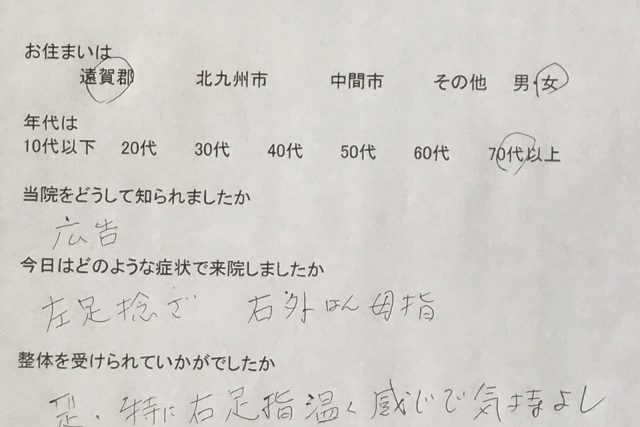 お住まいは
遠賀郡 北九州市 中間市 その他 男・女
年代は
10代以下 20代 30代 40代 50代 60代 70代以上
当院をどうして知られましたか
広告
今日はどのような症状で来院しましたか
左足捻ざ 右外はん母指
整体を受けられていかがでしたか
特に右足指温く感じで気持よし